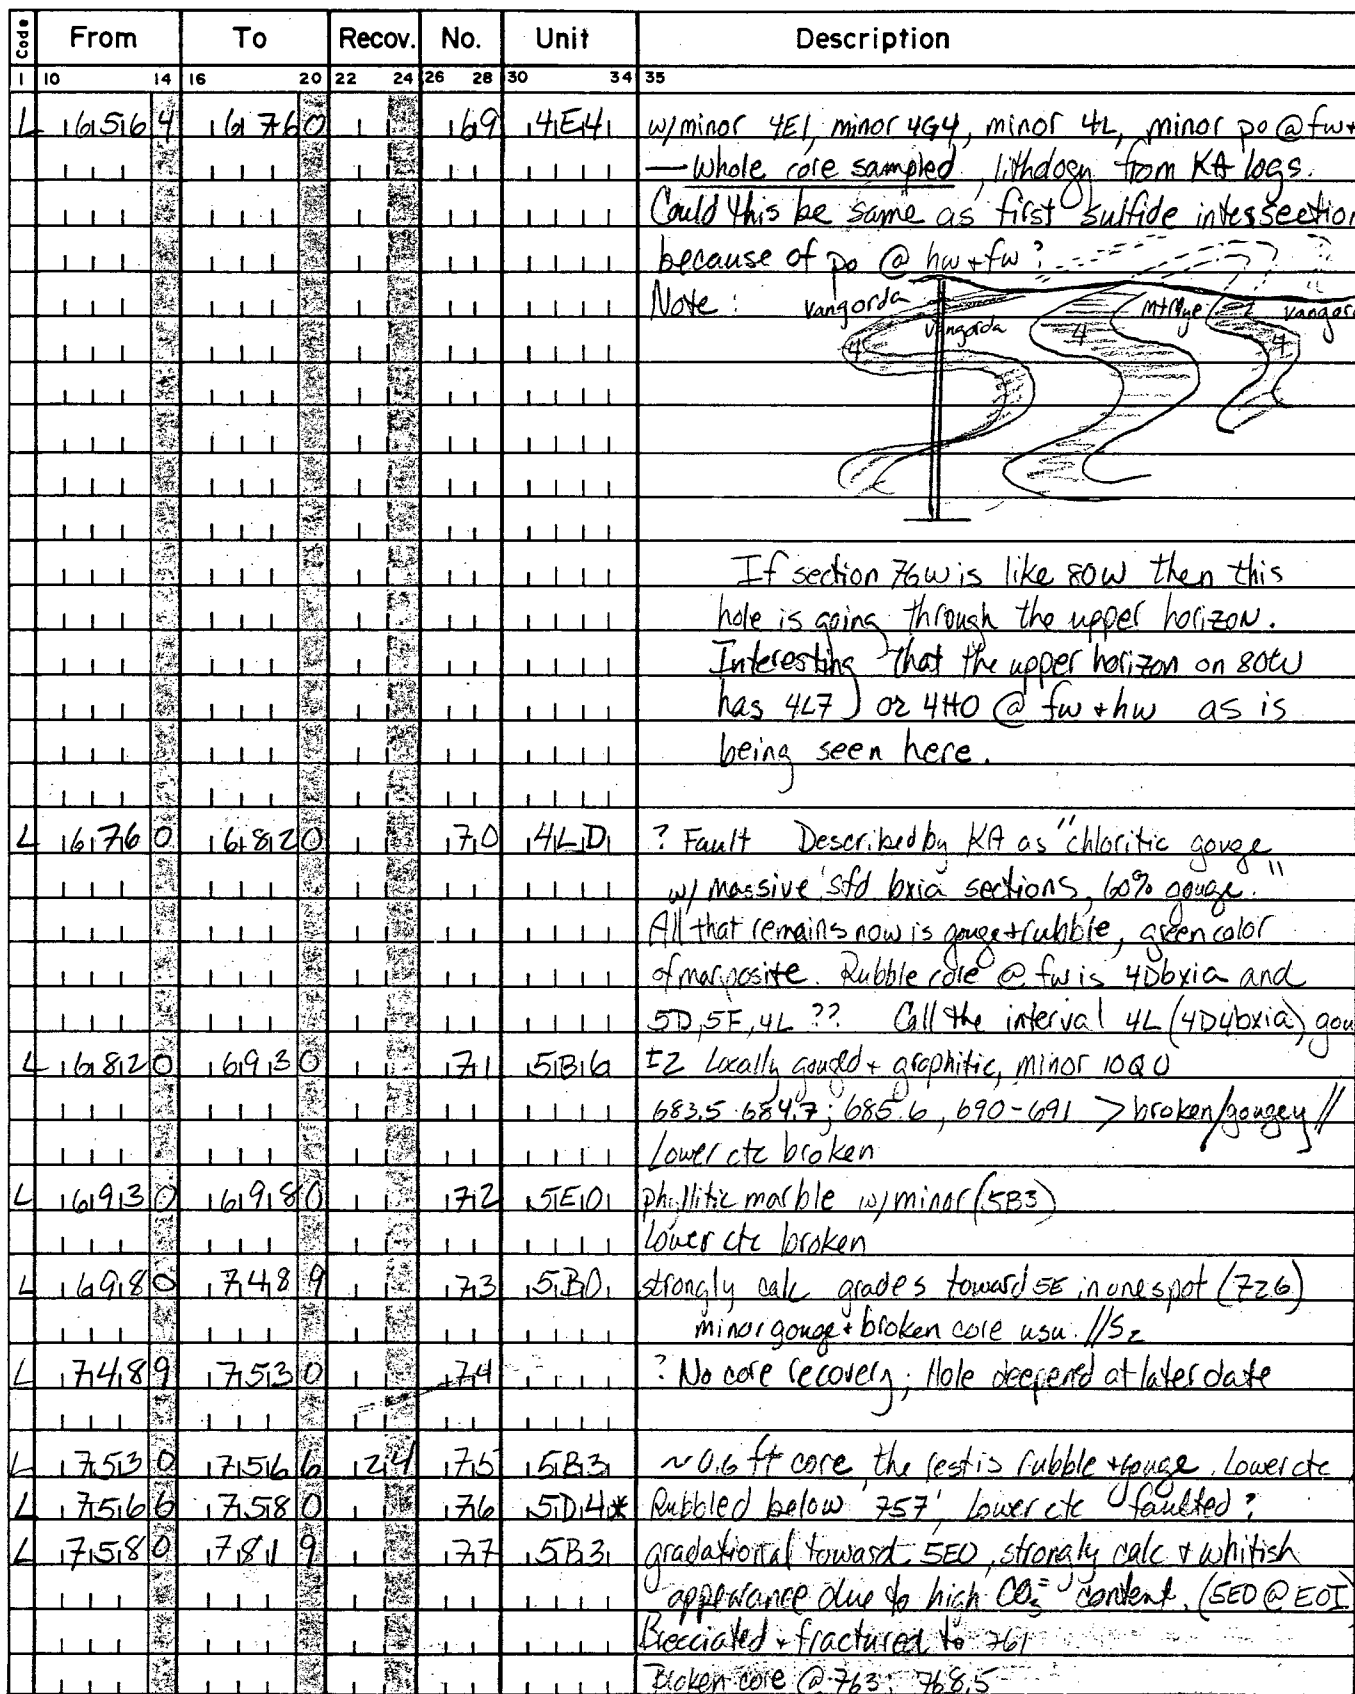 Code From To Recov. No. Unit Description
1 10 14 16 20 22 24 26 28 30 34 35
L 656 4 676 0 69 4E4 w/minor 4E1, minor 4G4, minor 4L, minor po @ fw+
— Whole core sampled, lithology from KA logs.
Could this be same as first sulfide intersection
because of po @ hw + fw?
Note: Vangorda Vangorda Mt Mye Vangor
4 4 4
If section 76W is like 80W then this
hole is going through the upper horizon.
Interesting that the upper horizon on 80W
has 4L7 or 4H0 @ fw + hw as is
being seen here.
L 676 0 682 0 70 4LD ? Fault Described by KA as "chloritic gouge
w/ massive sfd bxia sections, 60% gouge."
All that remains now is gouge + rubble, green color
of mariposite. Rubble core @ fw is 4Dbxia and
5D, 5F, 4L ?? Call the interval 4L (4D4bxia) gou
L 682 0 693 0 71 5B6 ±2 Locally gouged + graphitic, minor 10Q0
683.5-684.7; 685.6, 690-691 > broken/gougey //
Lower ctc broken
L 693 0 698 0 72 5E0 phyllitic marble w/ minor (5B3)
Lower ctc broken
L 698 0 748 9 73 5B0 strongly calc grades toward 5E in one spot (726)
minor gouge + broken core usu. //S2
L 748 9 753 0 74 ? No core recovery; Hole deepend at later date
L 753 0 756 6 24 75 5B3 ~0.6 ft core, the rest is rubble + gouge. Lower ctc
L 756 6 758 0 76 5D4* Rubbled below 757', Lower ctc faulted?
L 758 0 781 9 77 5B3 gradational toward 5E0, strongly calc + whitish
appearance due to high CO3= content. (5E0 @ EOI)
Brecciated + fractured to 761
Broken core @ 763; 768.5